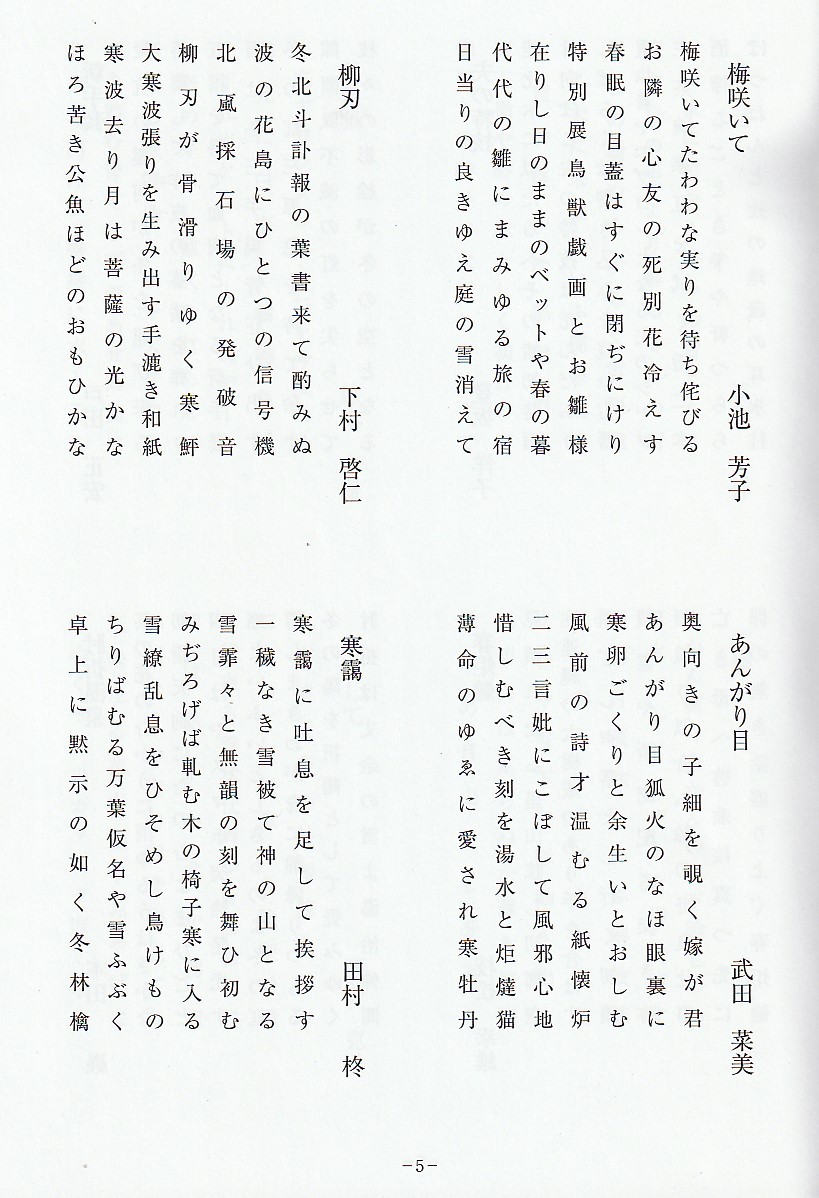 梅咲いて
小池　芳子
梅咲いてたわわな実りを待ち侘びる
お隣の心友の死別花冷えす
春眠の目蓋はすぐに閉ぢにけり
特別展鳥獣戯画とお雛様
在りし日のままのベットや春の暮
代代の雛にまみゆる旅の宿
日当りの良きゆえ庭の雪消えて
柳刃
下村　啓仁
冬北斗訃報の葉書来て酌みぬ
波の花島にひとつの信号機
北颪採石場の発破音
柳刃が骨滑りゆく寒鮃
大寒波張りを生み出す手漉き和紙
寒波去り月は菩薩の光かな
ほろ苦き公魚ほどのおもひかな
あんがり目
武田　菜美
奥向きの子細を覗く嫁が君
あんがり目狐火のなほ眼裏に
寒卵ごくりと余生いとおしむ
風前の詩才温むる紙懐炉
二三言妣にこぼして風邪心地
惜しむべき刻を湯水と炬燵猫
薄命のゆゑに愛され寒牡丹
寒靄
田村　柊
寒靄に吐息を足して挨拶す
一穢なき雪被て神の山となる
雪霏々と無韻の刻を舞ひ初む
みぢろげば軋む木の椅子寒に入る
雪繚乱息をひそめし鳥けもの
ちりばむる万葉仮名や雪ふぶく
卓上に黙示の如く冬林檎
－5－